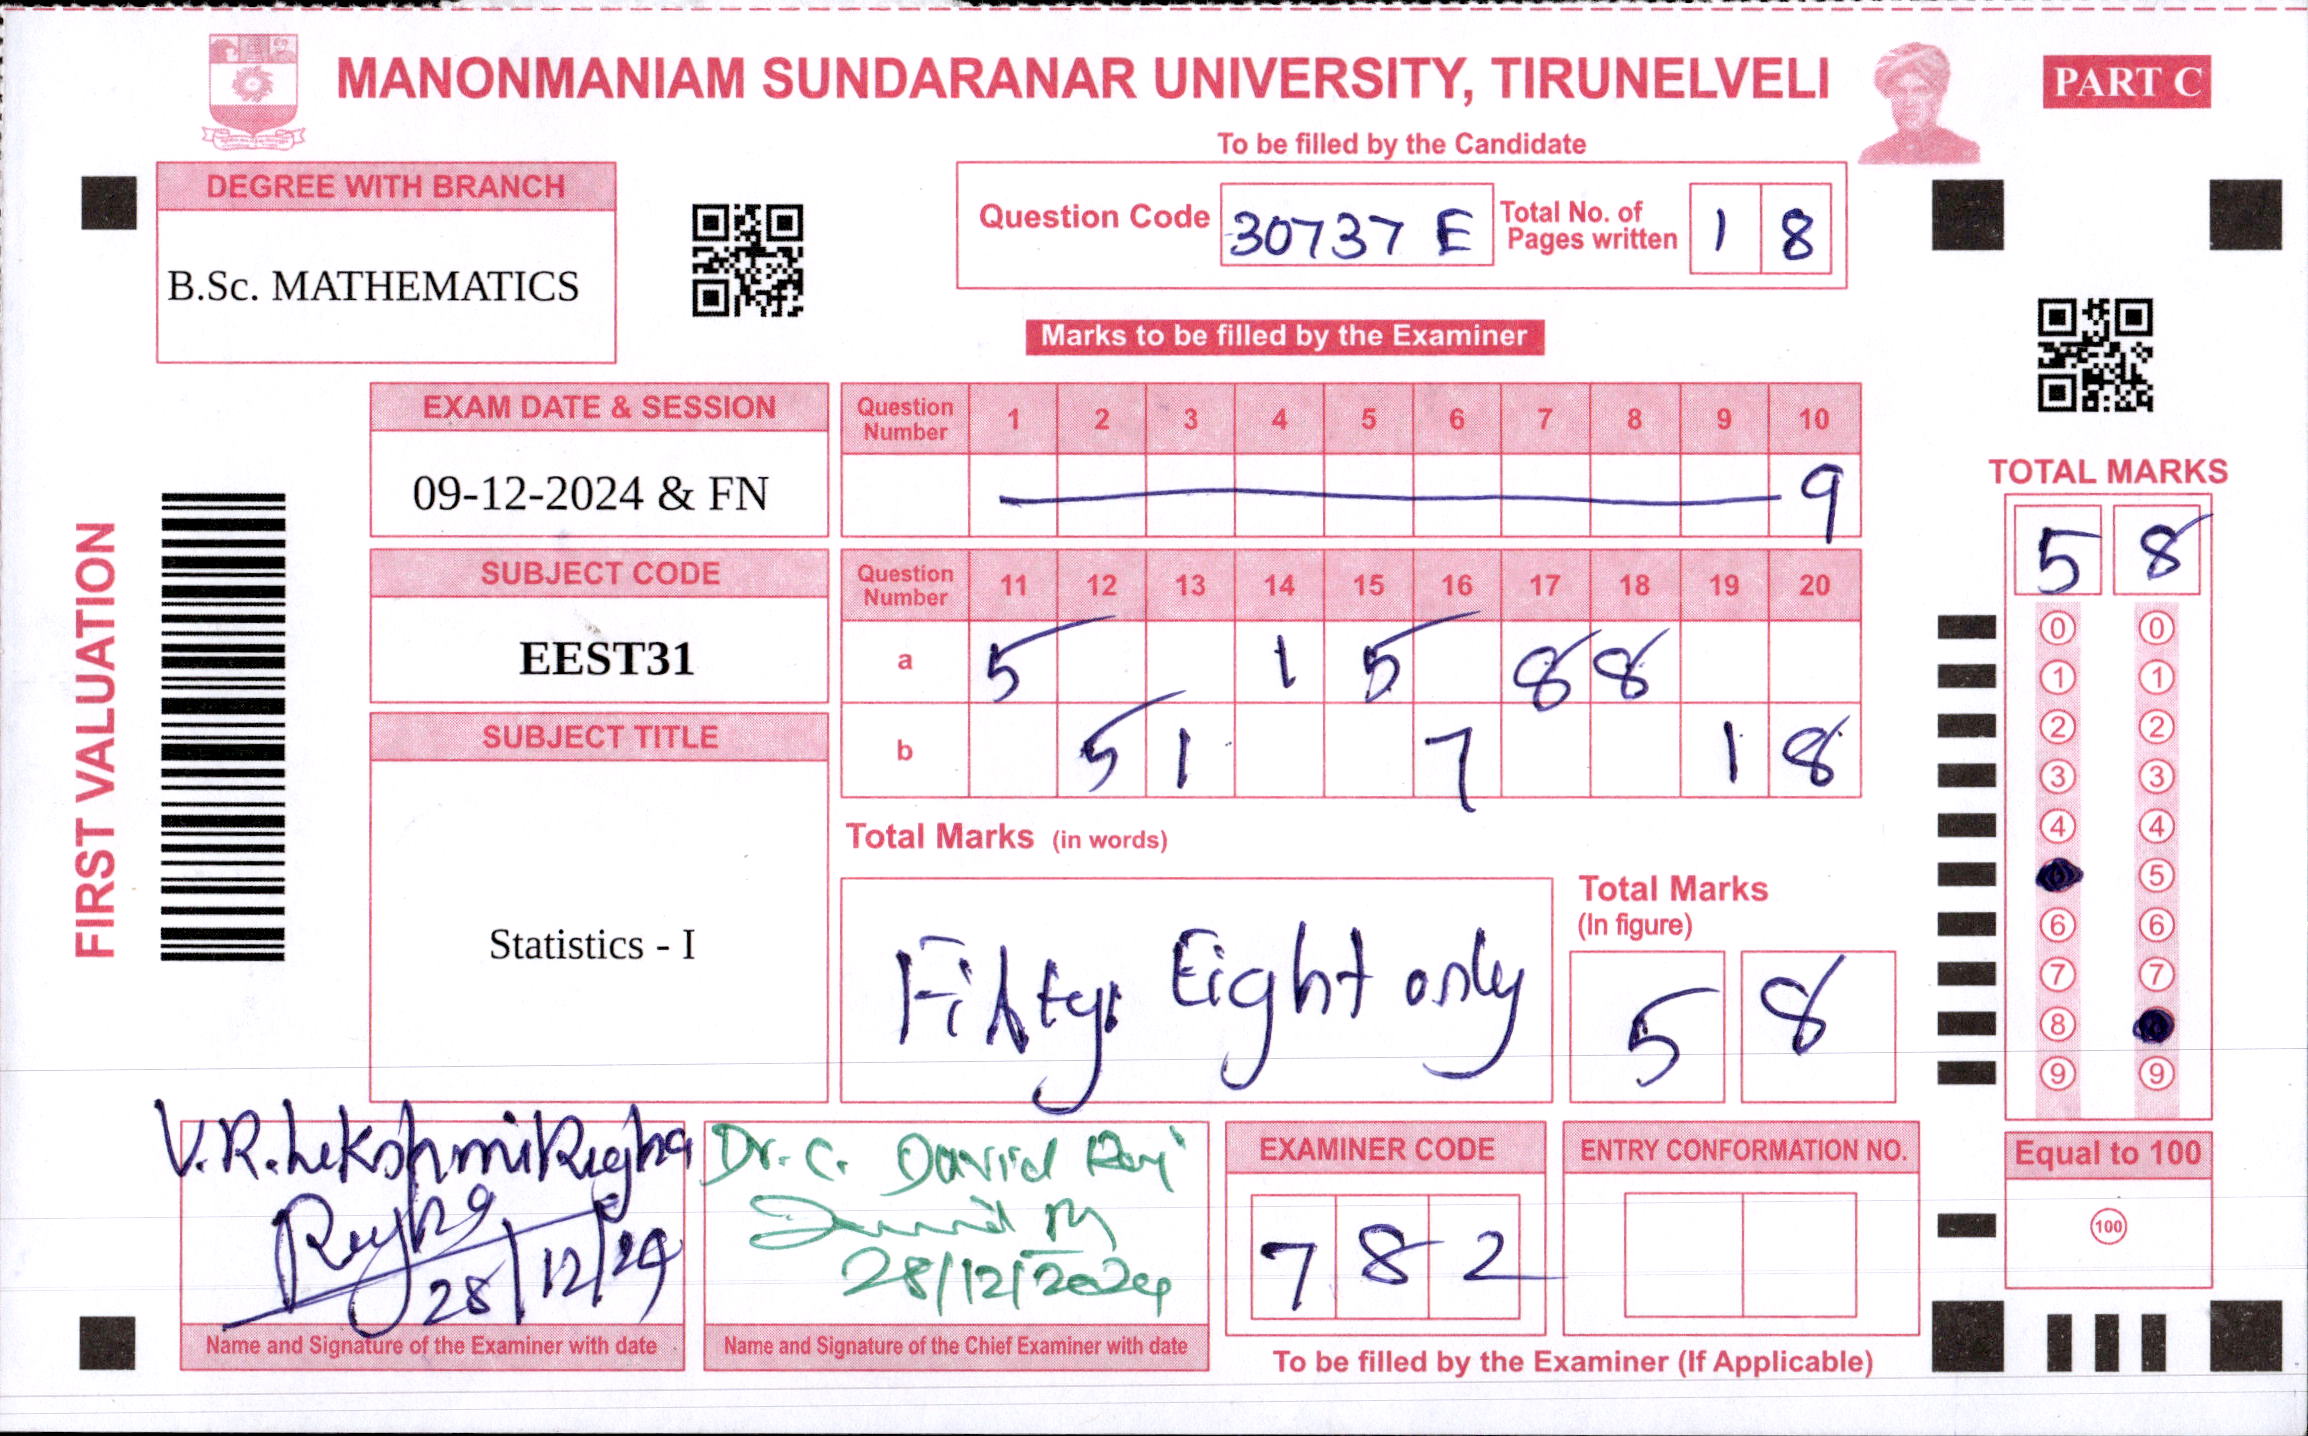 MANONMANIAM SUNDARANAR UNIVERSITY, TIRUNELVELI
PART C
To be filled by the Candidate
DEGREE WITH BRANCH
B.Sc. MATHEMATICS
Question Code 30737 E Total No. of Pages written 1 8
Marks to be filled by the Examiner
EXAM DATE & SESSION
09-12-2024 & FN
SUBJECT CODE
EEST31
SUBJECT TITLE
Statistics - I
FIRST VALUATION
Question Number 1 2 3 4 5 6 7 8 9 10
9
Question Number 11 12 13 14 15 16 17 18 19 20
a 5 1 5 8 8
b 5 1 7 1 8
Total Marks (in words)
Fifty Eight only
Total Marks
(In figure)
5 8
TOTAL MARKS
5 8
0 0
1 1
2 2
3 3
4 4
5
6 6
7 7
8
9 9
Equal to 100
100
V.R. Lekshmi
28/12/24
Name and Signature of the Examiner with date
Dr. C. David Raj
28/12/2024
Name and Signature of the Chief Examiner with date
EXAMINER CODE
7 8 2
ENTRY CONFORMATION NO.
To be filled by the Examiner (If Applicable)